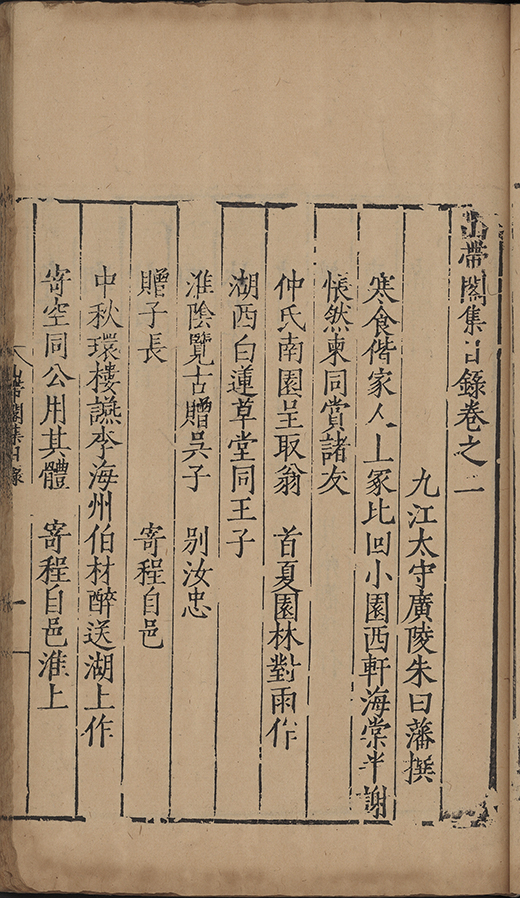 山帶閣集目錄卷之一
九江太守廣陵朱曰藩撰
寒食偕家人上冢比回小園西軒海棠半謝
悵然柬同賞諸友
仲氏南園呈取翁　首夏園林對雨作
湖西白蓮草堂同王子
淮陰覽古贈吳子　别汝忠
贈子長　寄程自邑
中秋環樓讌李海州伯材醉送湖上作
寄空同公用其體　寄程自邑淮上
山帶閣集目錄
一